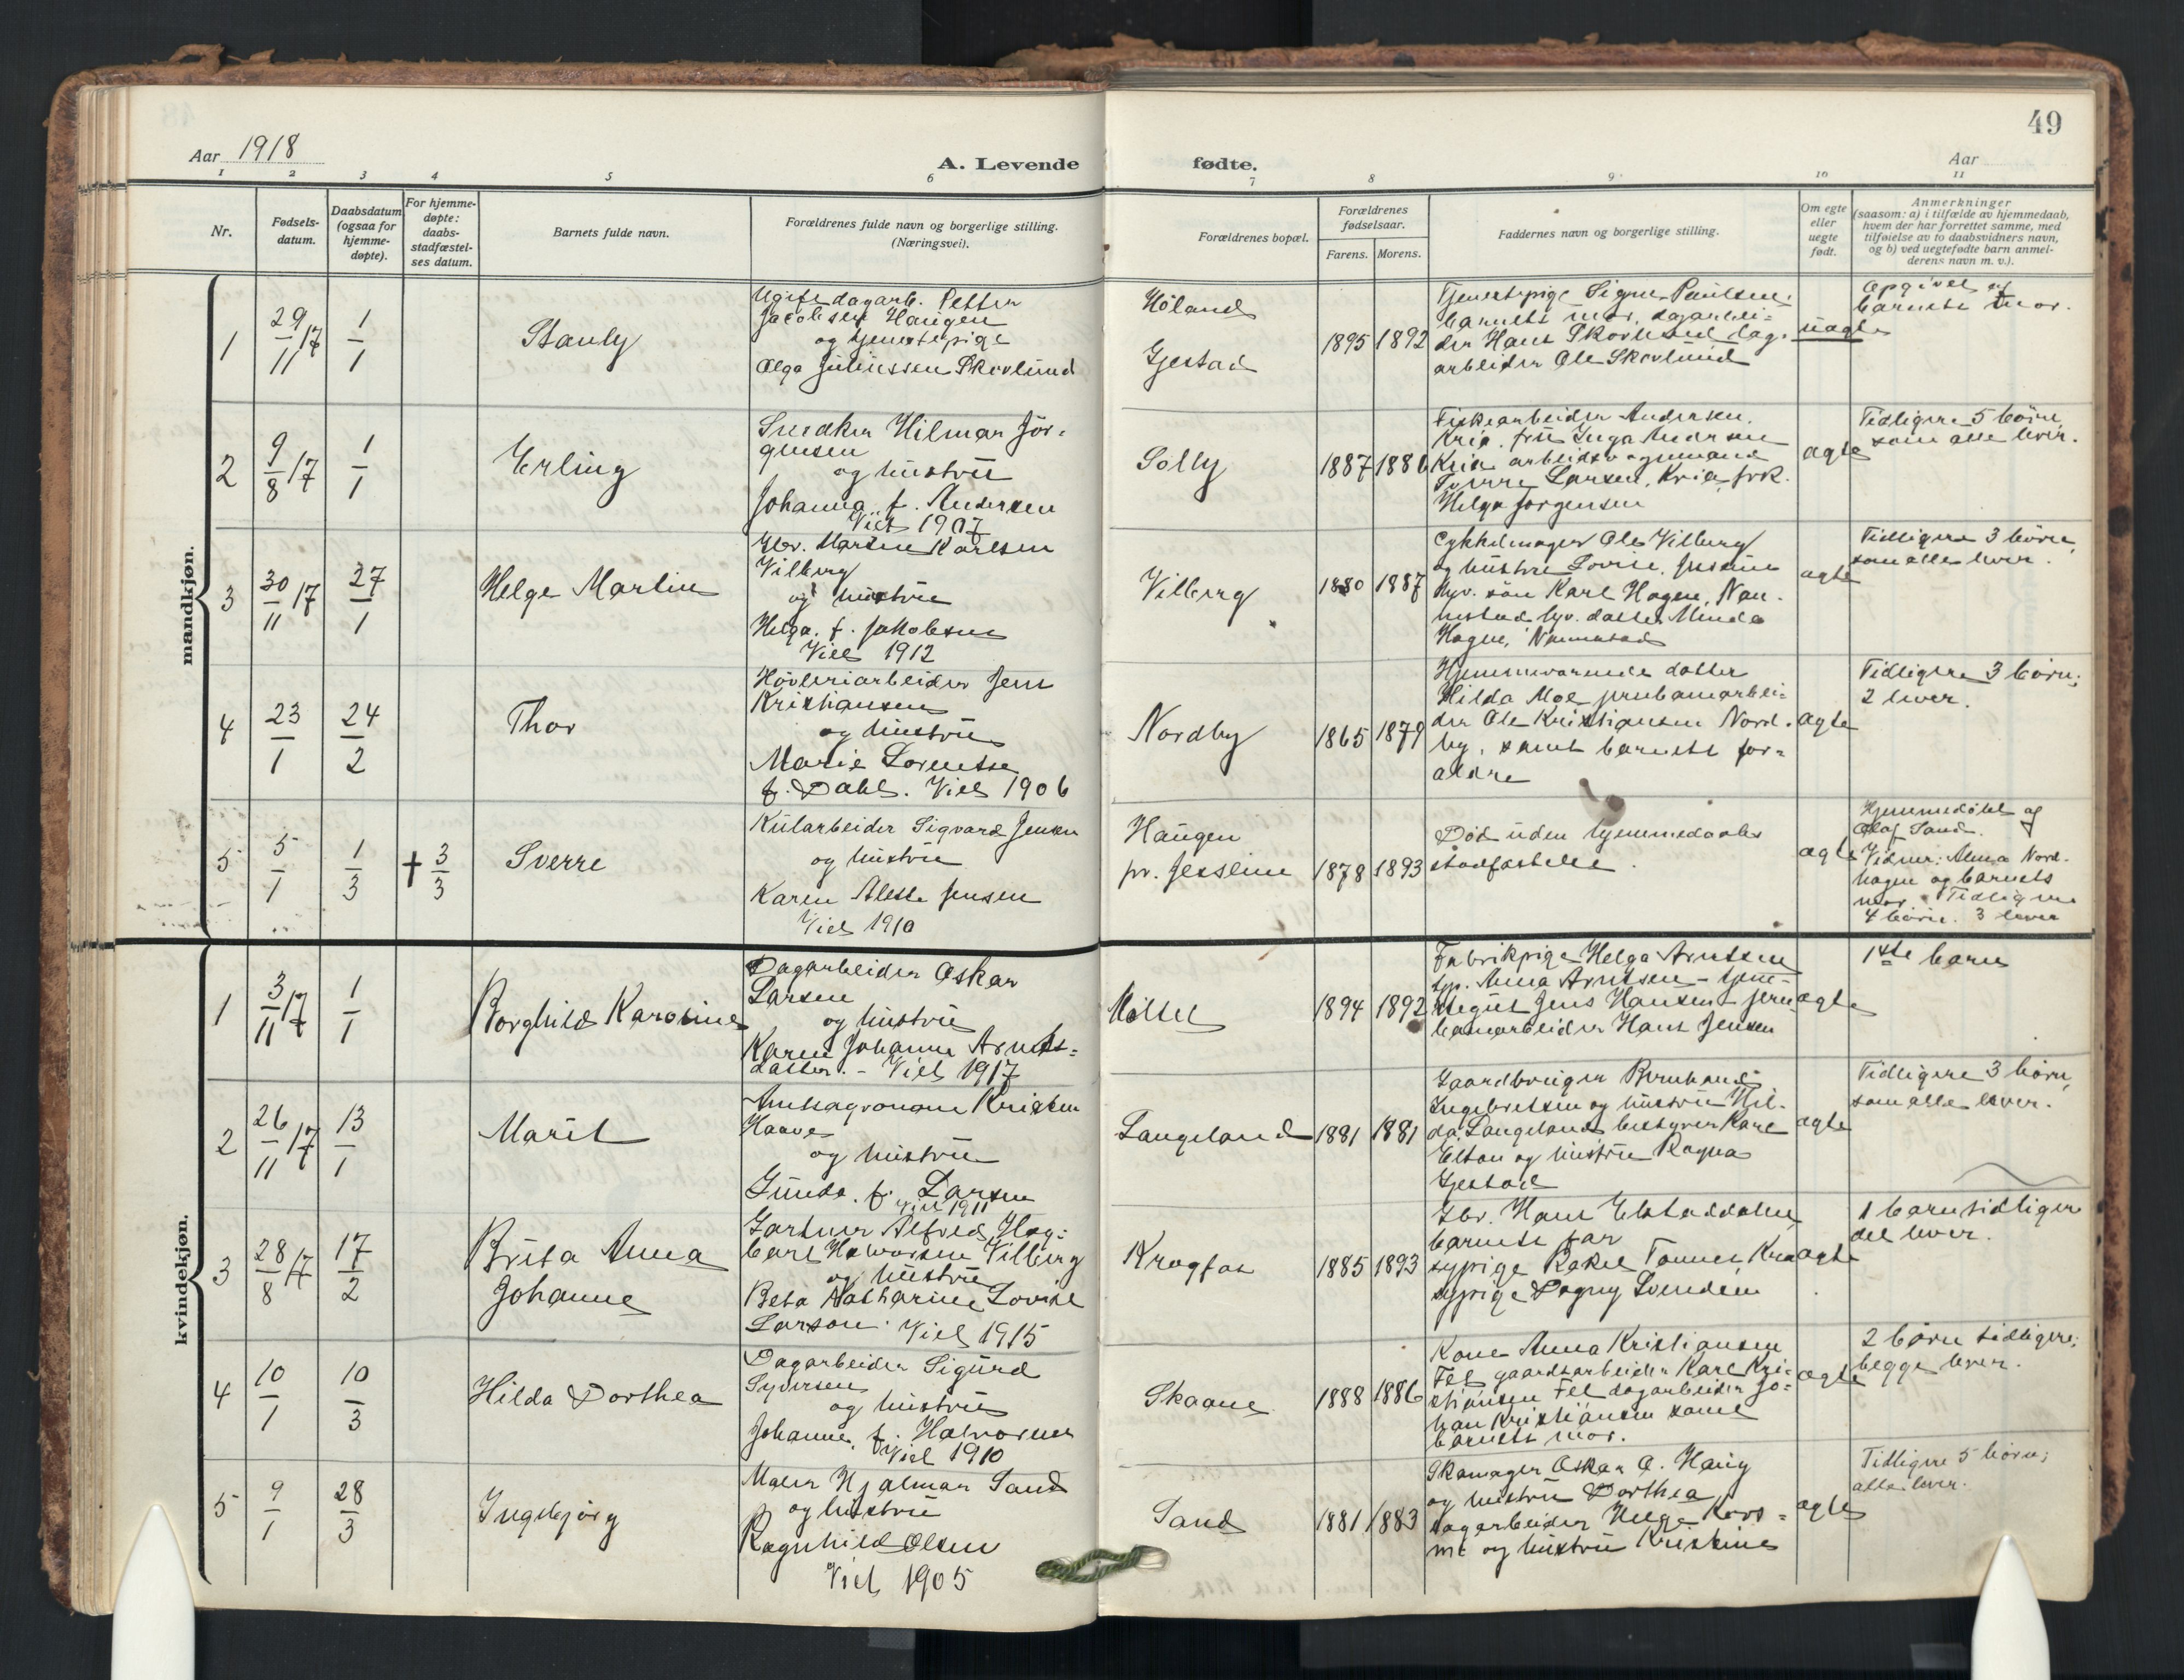 49
Aar 1918
A. Levende fødte.
Aar
1 2 3 4 5 6 7 8 9 10 11
Nr.
Fødsels-
datum.
Daabsdatum
(ogsaa for
hjemme-
døpte).
For hjemme-
døpte:
daabs-
stadfæstel-
ses datum.
Barnets fulde navn.
Forældrenes fulde navn og borgerlige stilling.
(Næringsvei).
Forældrenes bopæl.
Forældrenes
fødselsaar.
Farens. Morens.
Faddernes navn og borgerlige stilling.
Om egte
eller
uegte
født.
Anmerkninger
(saasom: a) i tilfælde av hjemmedaab,
hvem der har forrettet samme, med
tilføielse av to daabsvidners navn,
og b) ved uegtefødte barn anmel-
derens navn m. v.).
mandkjøn.
1
29/11 17
1/1
Stanly
Ugift dagarb. Petter
Jacobsen Haugen
og tjenestepige
Olga Juliussen Skovlund
Høland
Gjestad
1895 1892
Tjenestepige Signe Paulsen.
barnets mor, dagarbei-
der Hans Skovlund dag-
arbeider Ole Skovlund
uægte
Opgivet af
barnets mor.
2
9/8 17
1/1
Erling
Snedker Hilmar Jør-
gensen
og hustru
Johanna f. Andersen
Viet 1907
Solly
1887 1886
Fiskearbeider Andersen.
Kria. fru Inga Andersen
Kria arbeidsvognmand
Sverre Larsen, Kria, frk.
Helga Jørgensen
ægte
Tidligere 5 børn,
som alle lever.
3
30/11 17
27/1
Helge Martin
Gbr. Martin Karlsen
Vilberg
og hustru
Helga f. Jakobsen
Viet 1912
Vilberg
1880 1887
Cykkelmager Ole Vilberg
og hustru Lovise,
hjv. søn Karl Hagen, Nan-
nestad hjv. datter Minda
Hagen, Nannestad
ægte
Tidligere 3 børn,
som alle lever.
4
23/1
24/2
Thor
Høvleriarbeider Jens
Kristiansen
og hustru
Marie Lorentse
f. Dahl. Viet 1906
Nordby
1865 1879
Hjemmeværende datter
Hilda Moe jernbanearbei-
der Ole Kristiansen Nord-
by, samt barnets for-
ældre
ægte
Tidligere 3 børn;
2 lever.
5
5/1
1/3
† 3/3
Sverre
Kularbeider Sigvard Jensen
og hustru
Karen Alette Jensen
Viet 1910
Haugen
pr. Jessheim
1878 1893
Død uden hjemmedaabs
stadfæstelse.
ægte
Hjemmedøbt af
Olaf Sand.
Vidner: Alma Nord-
hagen og barnets
mor. Tidligere
4 børn. 3 lever
kvindekjøn.
1
3/11 17
1/1
Borghild Karoline
Dagarbeider Oskar
Larsen
og hustru
Karen Johanne Arnts-
datter. - Viet 1917
Moltet
1894 1892
Fabrikpige Helga Arntsen
tjp. Anna Arntsen - tjene-
stegut Jens Hansen - jern-
banearbeider Hans Jensen
ægte
1ste barn
2
26/11 17
13/1
Marit
Amtsagronom Kristen
Haave
og hustru
Gunda f. Larsen
Viet 1911
Langeland
1881 1881
Gaardbruger Bernhard
Ingebretsen og hustru Hil-
da, Langeland, bestyrer Karl
Elton og hustru Ragna
Gjestad
ægte
Tidligere 3 børn,
som alle lever.
3
28/8 17
17/2
Brita Anna
Johanne
Gartner Alfred Hag-
bart Halvorsen Vilberg
og hustru
Beta Katharine Lovise
Larson. Viet 1915
Krogfos
1885 1893
Gbr. Hans Ekstaddalen
barnets far
sypige Rakel Tannes, Kria
sypige Dagny Svendsen
ægte
1 barn tidligere
det lever.
4
10/1
10/3
Hilda Dorthea
Dagarbeider Sigurd
Syversen
og hustru
Johanne f. Halvorsen
Viet 1910
Skaane
1888 1886
Kone Anna Kristiansen
Fet gaardsarbeider Karl Kri-
stiansen Fet dagarbeider Jo-
han Kristiansen samt
barnets mor.
ægte
2 børn tidligere;
begge lever.
5
9/1
28/3
Ingebjørg
Maler Hjalmar Sand
og hustru
Ragnhild Olsen
Viet 1905
Sand
1881 1883
Skomager Oskar A. Haug
og hustru Dorthea,
dagarbeider Helge Kors-
mo og hustru Kristine
ægte
Tidligere 5 børn;
alle lever.